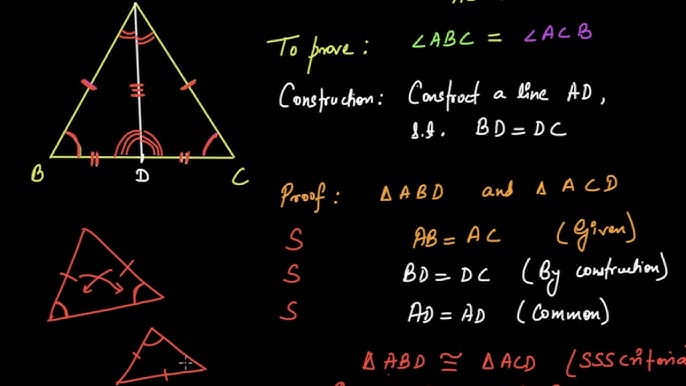 To prove: ∠ABC = ∠ACB
Construction: Construct a line AD,
s.t. BD = DC
B D C
Proof: Δ ABD and Δ ACD
S AB = AC (Given)
S BD = DC (By construction)
S AD = AD (Common)
Δ ABD ≅ Δ ACD (SSS criteria